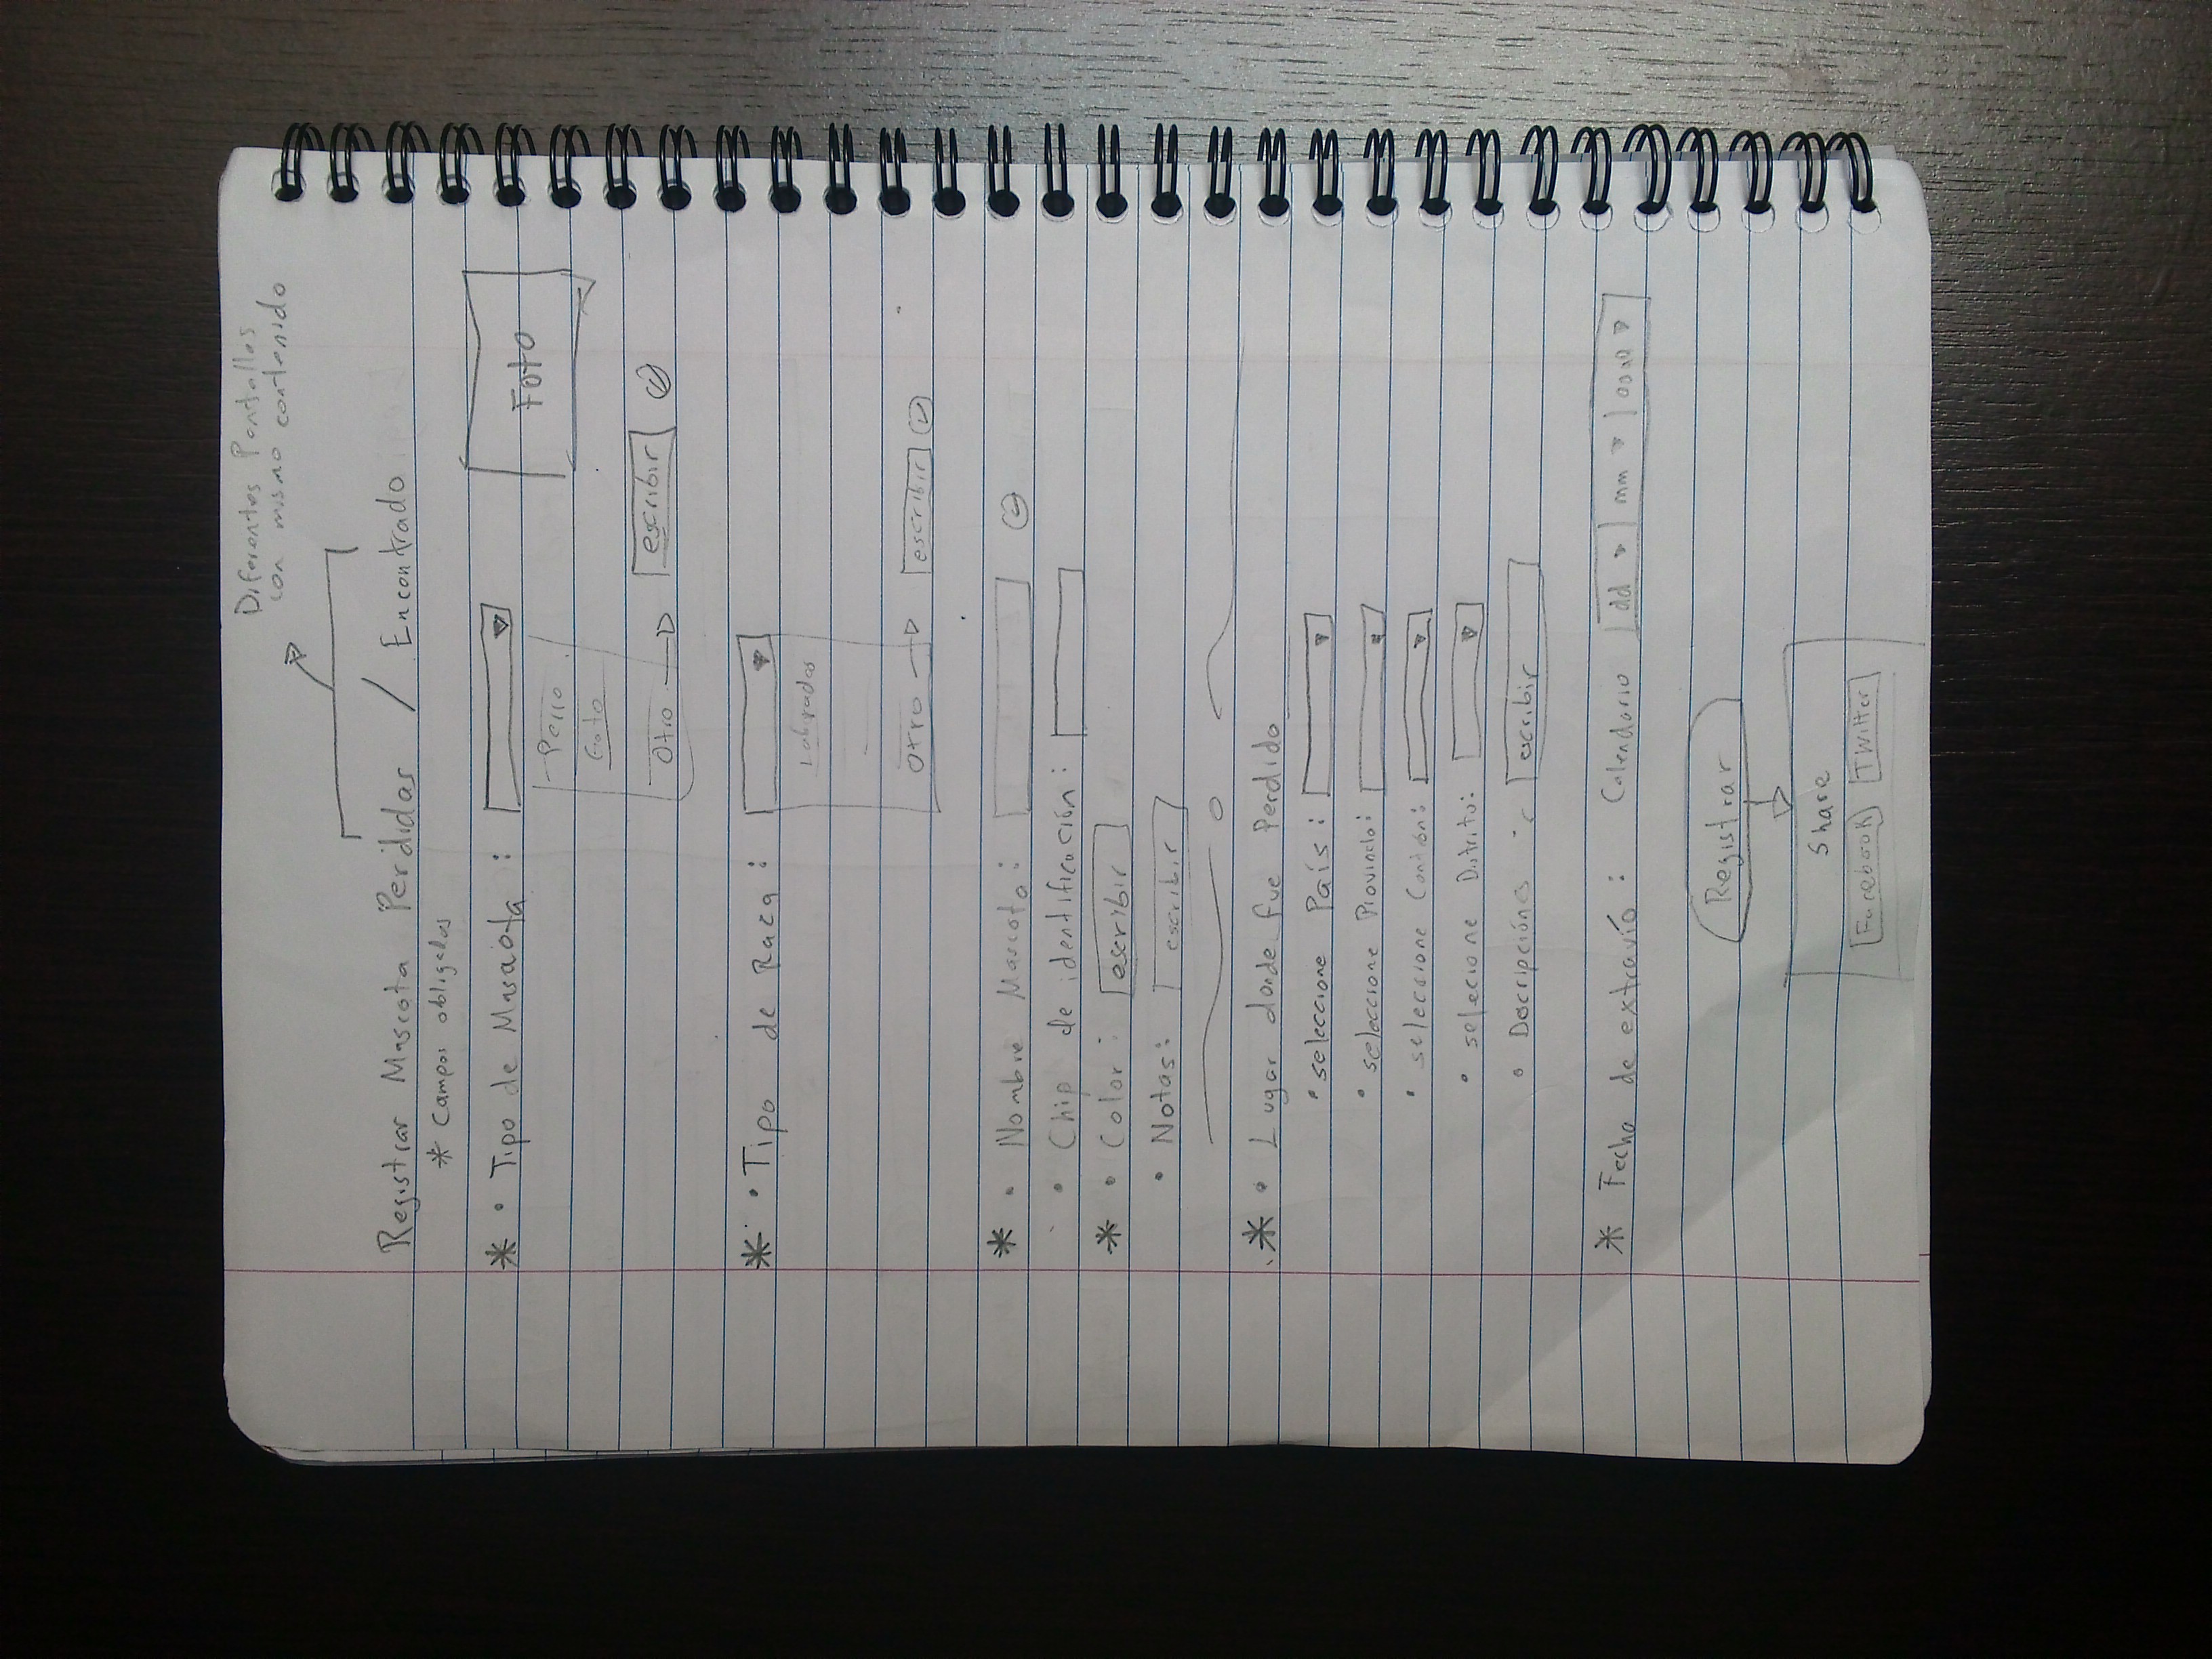 Diferentes Pantallas
con mismo contenido
Registrar Mascota Perdidas / Encontrado
* Campos obligados
* • Tipo de Mascota :
Foto
Perro
Gato
Otro escribir
* • Tipo de Raza :
Labrador
Otro escribir
* • Nombre Mascota :
• Chip de identificación :
* • Color : escribir
• Notas : escribir
* • Lugar donde fue Perdido
• seleccione País :
• seleccione Provincia :
• seleccione Cantón :
• selecione Distrito :
• Descripciónes : escribir
* Fecha de extravío : Calendario dd mm
Registrar
Share
Facebook Twitter